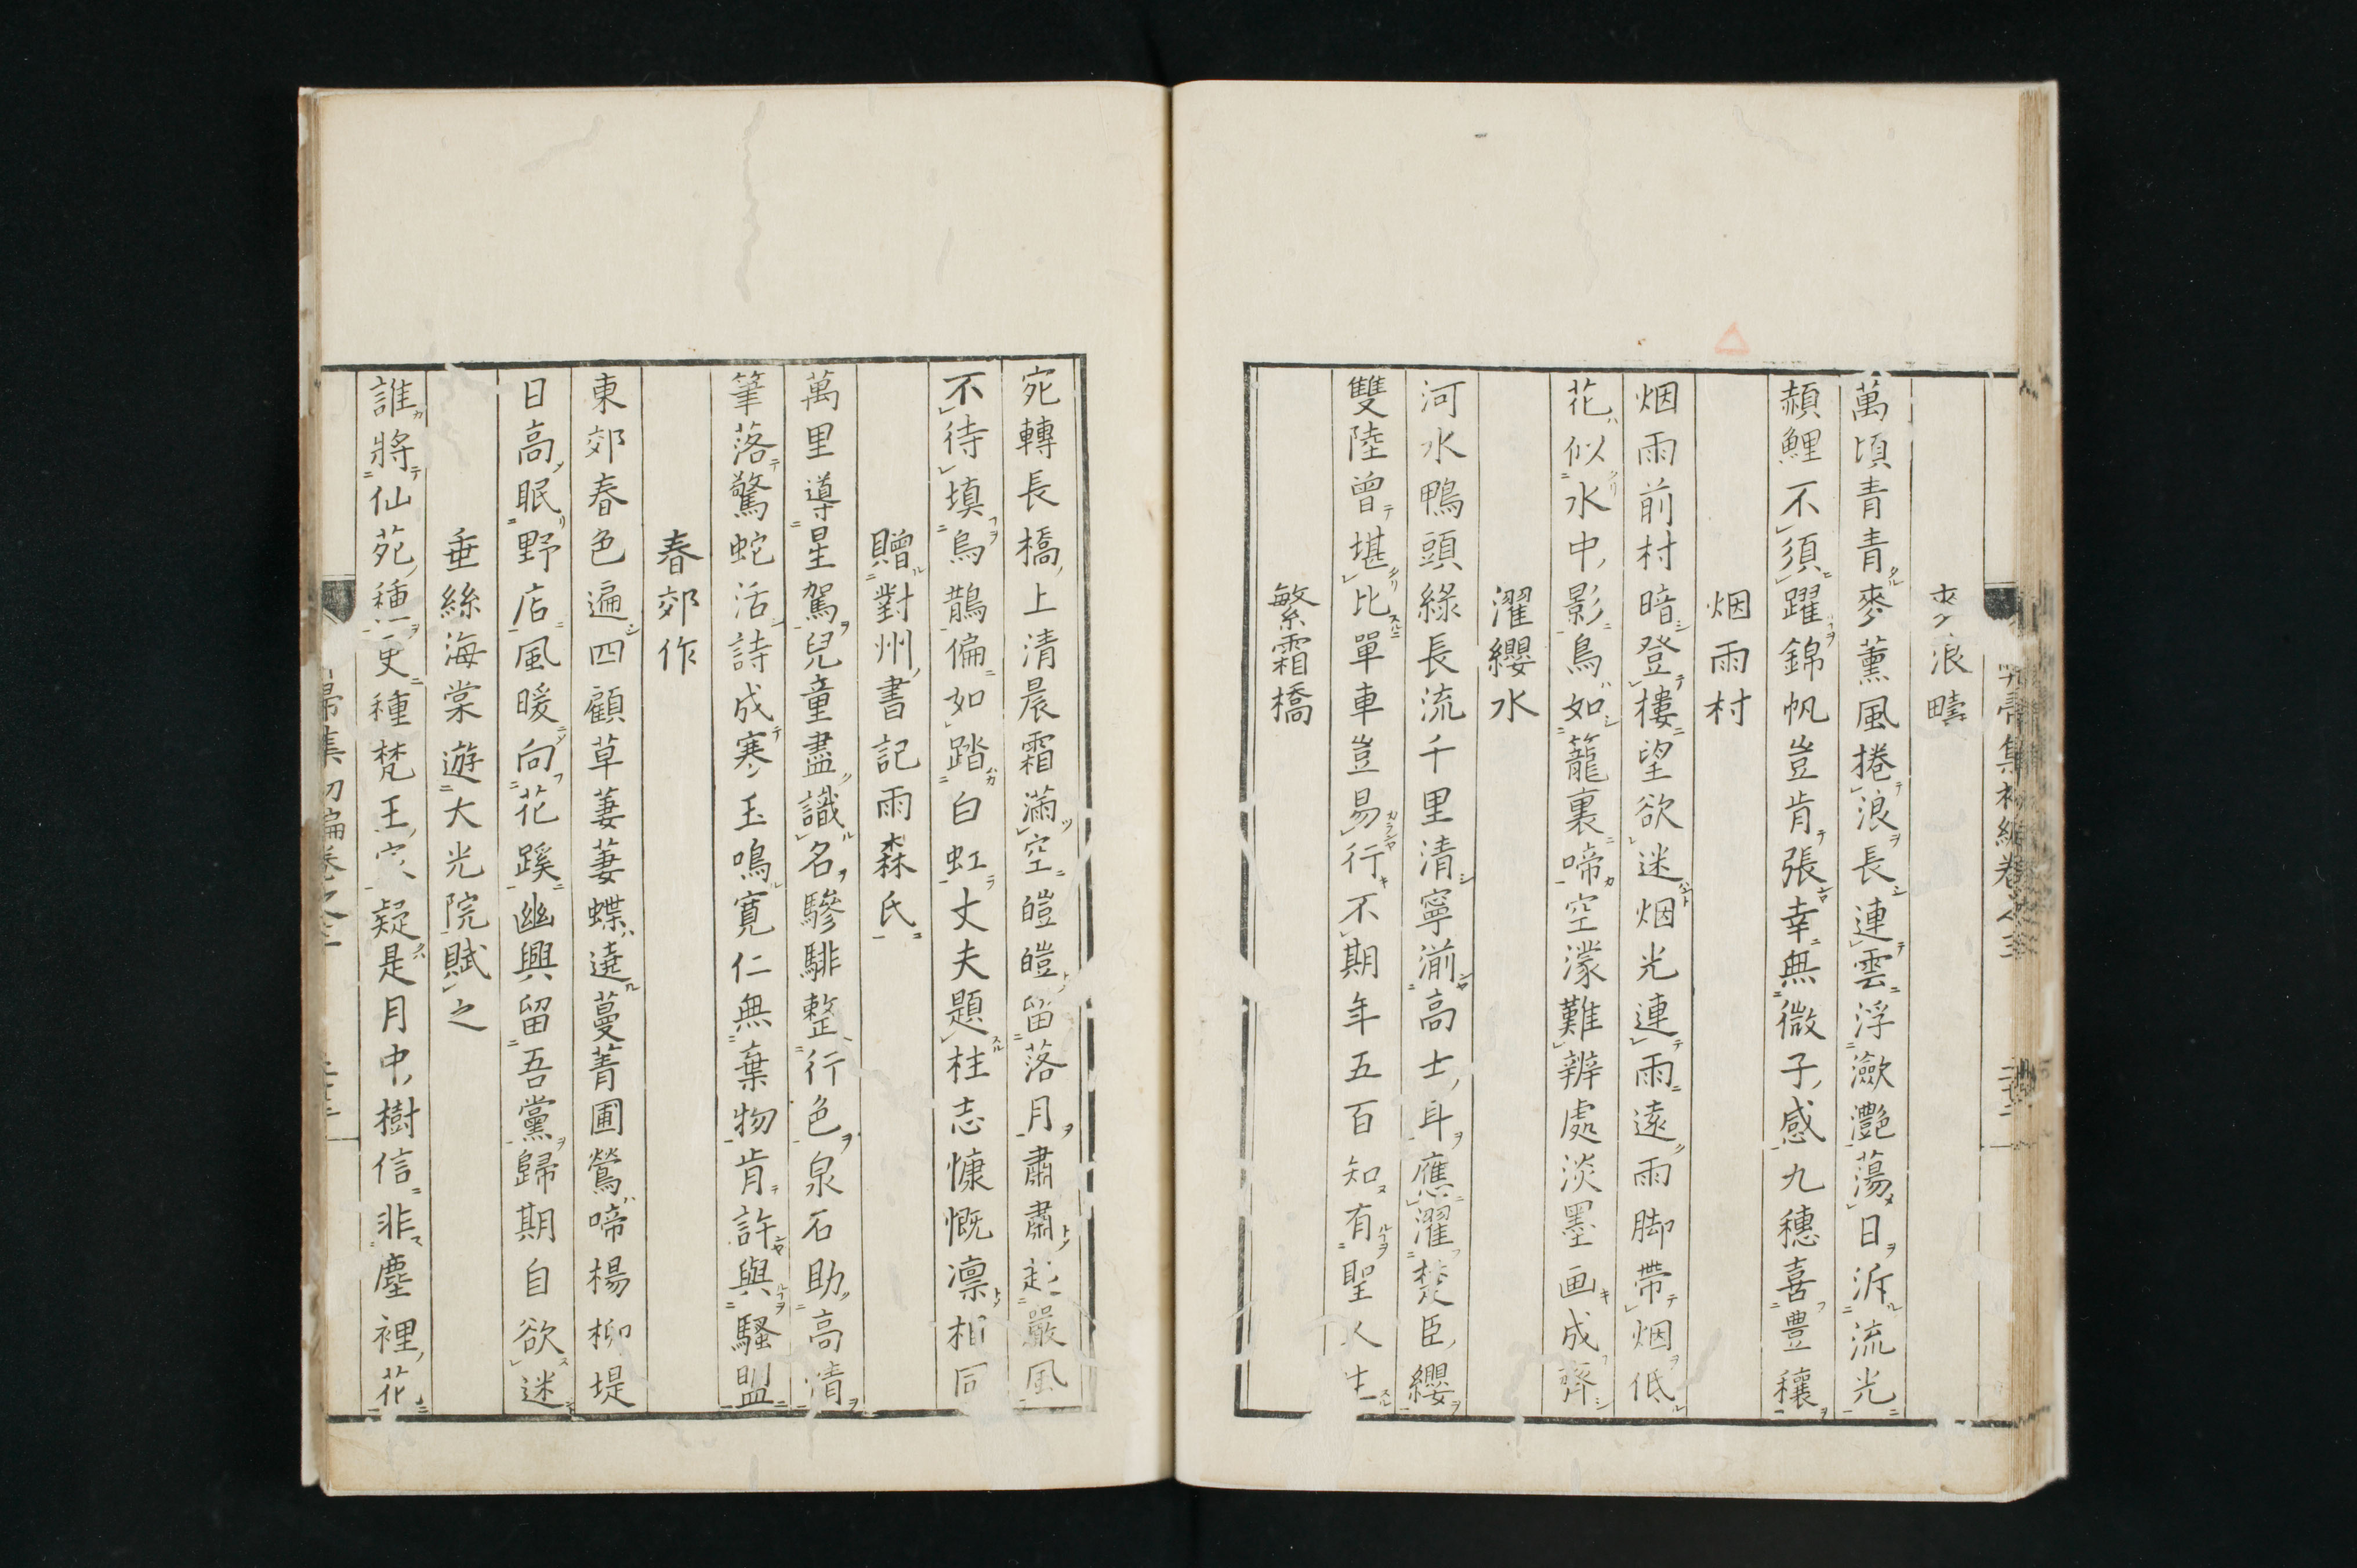 麥浪疇
萬頃青青麥薰風捲浪長連雲浮瀲灔蕩日泝流光
頳鯉不須躍錦帆豈肯張幸無微子感九穗喜豊穰
烟雨村
烟雨前村暗登樓望欲迷烟光連雨遠雨脚帶烟低
花似水中影鳥如籠裏啼空濛難辨處淡墨画成齊
濯纓水
河水鴨頭綠長流千里清寧湔高士耳應濯楚臣纓
雙陸曾堪比單車豈易行不期年五百知有聖人生
繁霜橋
宛轉長橋上清晨霜滿空皚皚留落月肅肅起嚴風
不待填烏鵲偏如踏白虹丈夫題柱志慷慨凛相同
贈對州書記雨森氏
萬里導星駕兒童盡識名驂騑整行色泉石助高清
筆落驚蛇活詩成寒玉鳴寬仁無棄物肯許與騷盟
春郊作
東郊春色遍四顧草萋萋蝶遶蔓菁圃鶯啼楊柳堤
日高眠野店風暖向花蹊幽興留吾黨歸期自欲迷
垂絲海棠遊大光院賦之
誰將仙苑種更種梵王宍疑是月中樹信非塵裡花